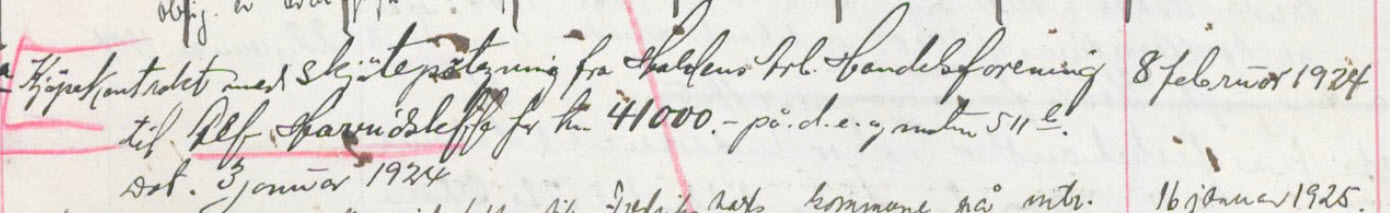 oblig. er
Kjøpekontrakt med skjøtepåtegning fra Haldens Arb. Handelsforening 8 februar 1924
til Alf Harnidsleff for kr. 41000.- på d.e. og matr. 511 b.
Dat. 3 januar 1924
til Fredrikshalds kommune på mtr. 16 januar 1925.